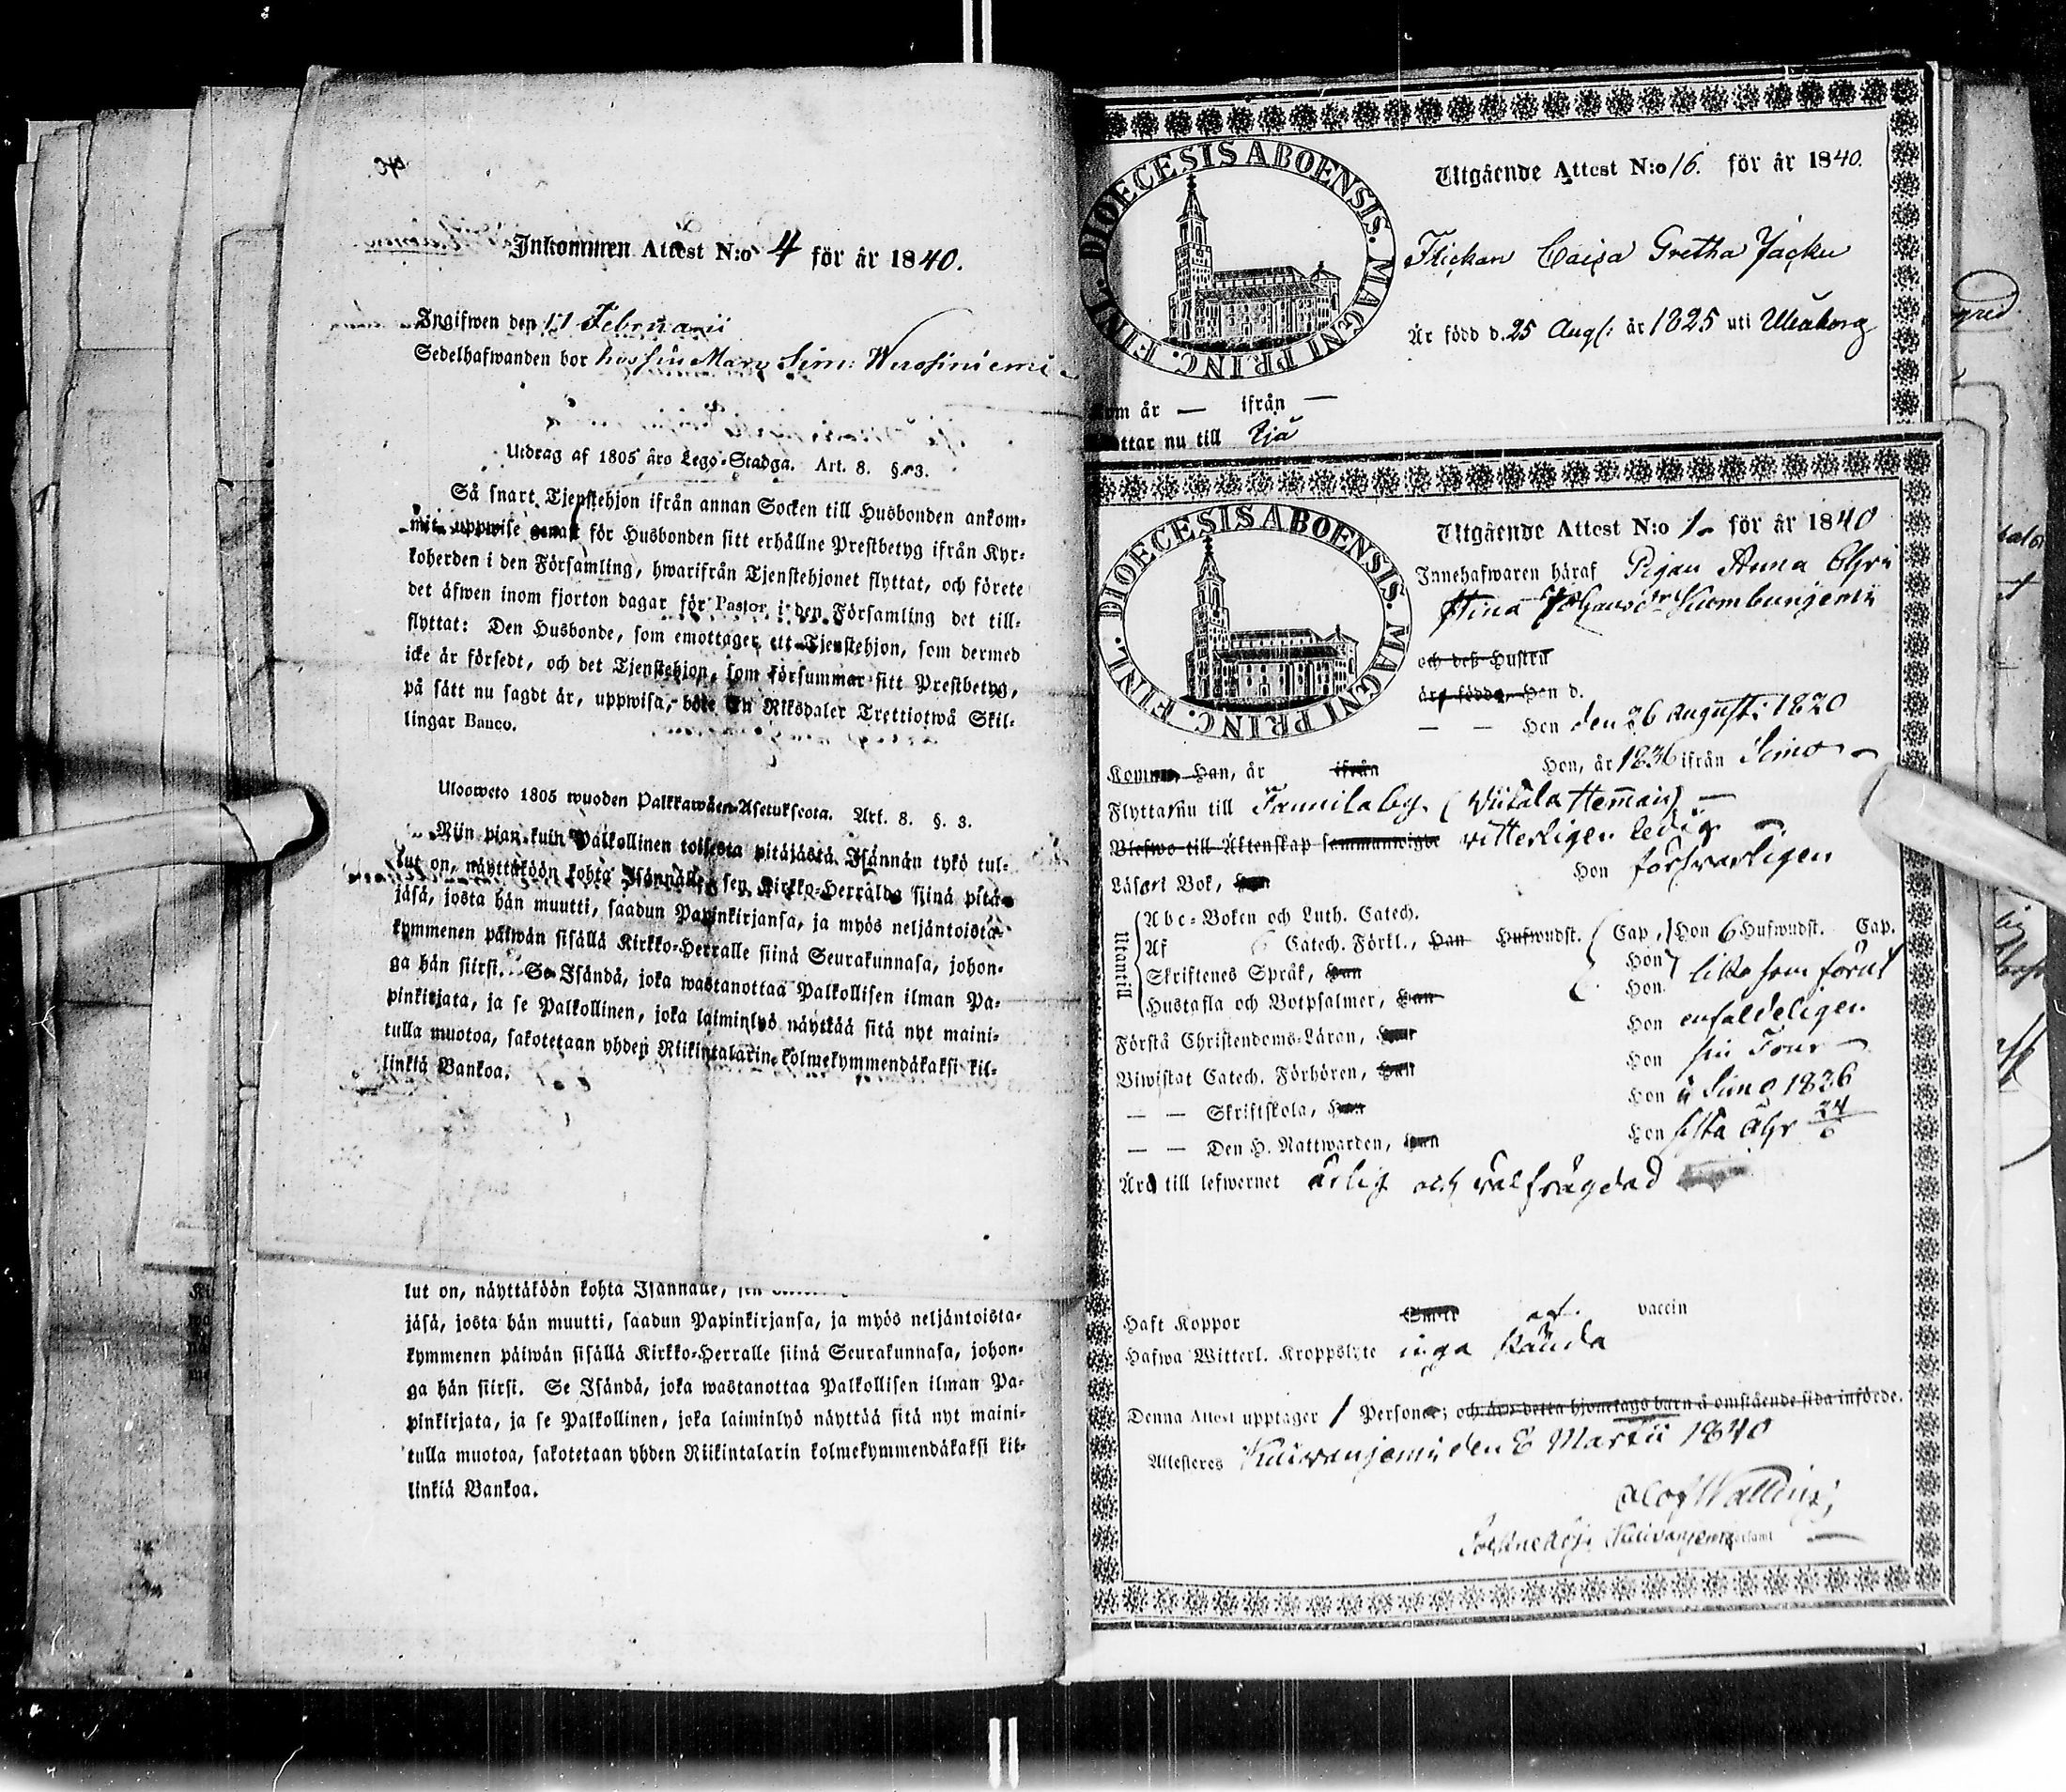 40
Inkommen Attest N:o 4 för år 1840.
Ingifwen den 17 Februarii
Sedelhafwanden bor hos sin Man Sim:
Utdrag af 1805 åro Lego-Stadga. Art. 8. §. 3.
Så snart Tjenstehjon ifrån annan Socken till Husbonden ankom-
mit, uppwise genast för Husbonden sitt erhållne Prestbetyg ifrån Kyr-
koherden i den Församling, hwarifrån Tjenstehjonet flyttat, och förete
det äfwen inom fjorton dagar för Pastor i den Församling det till-
flyttat: Den Husbonde, som emottager ett Tjenstehjon, som dermed
icke är försedt, och det Tjenstehjon, som försummar sitt Prestbetyg,
på sätt nu sagdt är, uppwisa, böte En Riksdaler Trettiotwå Skil-
lingar Banco.
Ulooweto 1805 wuoden Palkkawäen-Asetukseota. Art. 8. §. 3.
Niin pian kuin Palkollinen toisesta pitäjästä Isännän tykö tul-
lut on, näyttäköön kohta Isännälle, sen Kirkko-Herralda siinä pitä-
jäsä, josta hän muutti, saadun Papinkirjansa, ja myös neljäntoista-
kymmenen päiwän sisällä Kirkko-Herralle siinä Seurakunnasa, johon-
ga hän siirsi. Se Isändä, joka wastanottaa Palkollisen ilman Pa-
pinkirjata, ja se Palkollinen, joka laiminlyö näyttää sitä nyt maini-
tulla muotoa, sakotetaan yhden Riikintalarin kolmekymmendäkaksi kil-
linkiä Bankoa.
lut on, näyttäköön kohta Isännälle, sen
jäsä, josta hän muutti, saadun Papinkirjansa, ja myös neljäntoista-
kymmenen päiwän sisällä Kirkko-Herralle siinä Seurakunnasa, johon-
ga hän siirsi. Se Isändä, joka wastanottaa Palkollisen ilman Pa-
pinkirjata, ja se Palkollinen, joka laiminlyö näyttää sitä nyt maini-
tulla muotoa, sakotetaan yhden Riikintalarin kolmekymmendäkaksi kil-
linkiä Bankoa.
DIOECESIS ABOENSIS. MAGNI PRINC. FINL.
Utgående Attest N:o 16. för år 1840.
Flickan Caisa Gretha Jacku
Är född d. 25 Aug: år 1825 uti Uleåborg
Kom år — ifrån —
flyttar nu till Ijå
DIOECESIS ABOENSIS. MAGNI PRINC. FINL.
Utgående Attest N:o 1. för år 1840
Innehafwaren häraf Pigan Anna Chri
stina Johansdr Kumbunjemi
och deß Hustru
äro födde, Han d.
— — Hon den 26 Augusti 1820
Kommo, Han, år ifrån Hon, år 1836 ifrån Simo
Flytta nu till Tannila by. (Wiitala Heman) —
Blefwo till Äktenskap sammanwigde witterligen ledig
Läsa i Bok, Han Hon försvarligen
Utantill
Abc-Boken och Luth. Catech.
Af 6 Catech. Förkl., Han Hufwudst. Cap., Hon 6 Hufwudst. Cap.
Skriftenes Språk, Han Hon lika som förut
Hustafla och Botpsalmer, Han Hon
Förstå Christendoms-Läran, Han Hon enfaldeligen
Biwistat Catech. Förhören, Han Hon sin Tour
— — Skriftskola, Han Hon i Simo 1836
— — Den H. Nattwarden, Han Hon sista åhr 24/6
Äro till lefwernet ärlig och välfrägdad
Haft Koppor Smitt af vaccin
Hafwa Witterl. Kroppslyte inga kända
Denna Attest upptager 1 Personer; och äro detta hjonelags barn å omstående sida införde.
Attesteres Kuiwanjemi den 8 Martii 1840
Olof
Sockneadj. i Kuivanjemi